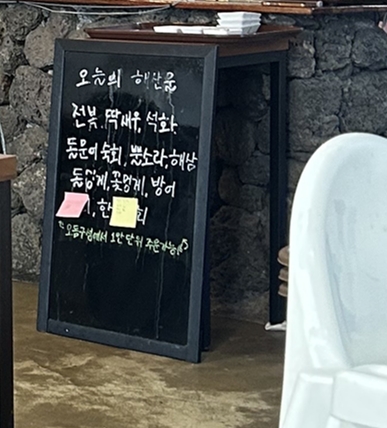 오늘의 해산물
전복, 딱새우, 석화,
돌문어 숙회, 뿔소라, 해삼
돌멍게, 꽃멍게, 방어
한 회
"모둠구성에서 1만 단위 주문가능!"